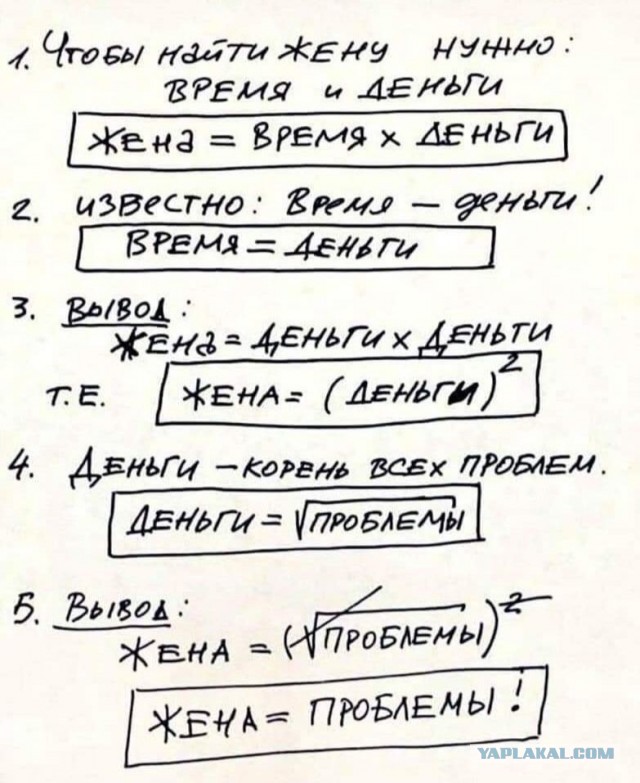 1. Чтобы найти жену нужно:
время и деньги
жена = время х деньги
2. известно: время – деньги!
время = деньги
3. Вывод:
жена = деньги х деньги
т.е. жена = (деньги)²
4. Деньги – корень всех проблем.
деньги = √проблемы
5. Вывод:
жена = (√проблемы)²
жена = проблемы!
YAPLAKAL.COM